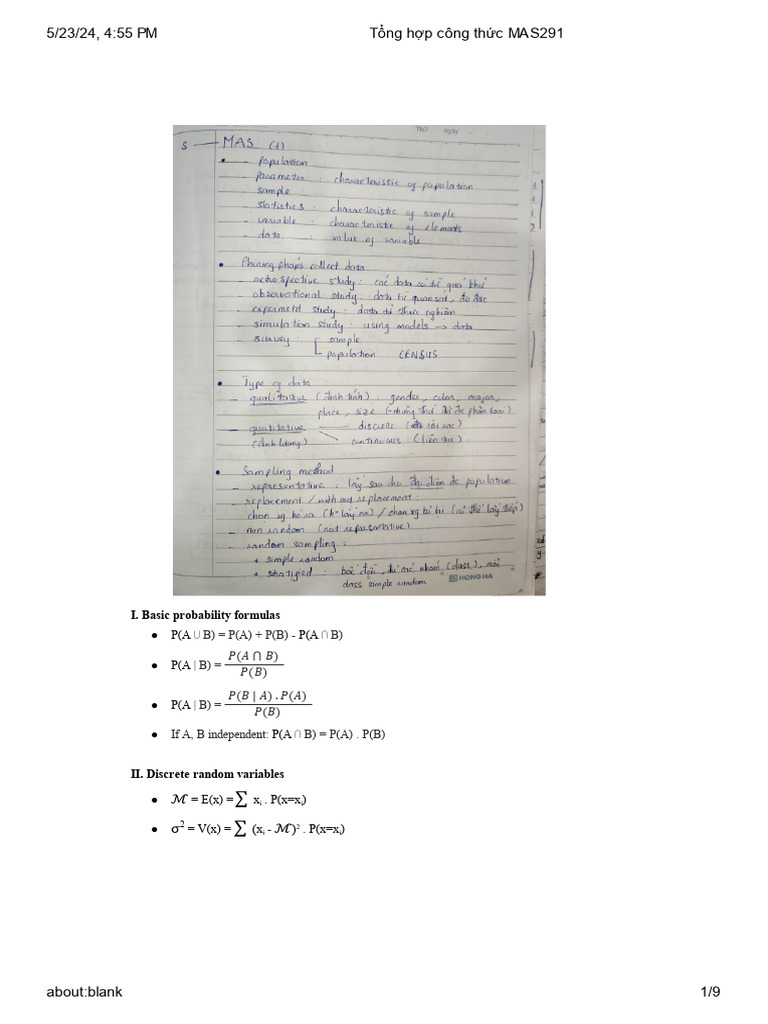 5/23/24, 4:55 PM Tổng hợp công thức MAS291
Thứ Ngày
S MAS (1)
• - population
- parameter : characteristic of population
- sample
- statistics : characteristic of sample
- variable : characteristic of elements
- data : value of variable
• Phương pháp collect data
- retrospective study : các data có từ quá khứ
- observational study : data từ quan sát, đo đạc
- experiment study : data từ thực nghiệm
- simulation study : using models → data
- survey : sample
population CENSUS
• Type of data
- qualitative (định tính) : gender, color, major,
place, size (những thứ để phân loại)
- quatitative discrete (rời rạc)
(định lượng) continuous (liên tục)
• Sampling method
- representative : lấy sao cho đại diện đc population
- replacement / without replacement :
chọn xg bỏ ra (k lấy nx) / chọn xg bỏ lại (có thể lấy tiếp)
- non random (not representative)
- random sampling :
+ simple random
+ stratified : bốc đều, từ các nhóm (class), mỗi
class simple random
HONG HA
I. Basic probability formulas
● P(A ∪ B) = P(A) + P(B) - P(A ∩ B)
● P(A | B) = P(A ∩ B) / P(B)
● P(A | B) = P(B | A) . P(A) / P(B)
● If A, B independent: P(A ∩ B) = P(A) . P(B)
II. Discrete random variables
● ℳ = E(x) = ∑ xᵢ . P(x=xᵢ)
● σ² = V(x) = ∑ (xᵢ - ℳ)² . P(x=xᵢ)
about:blank 1/9